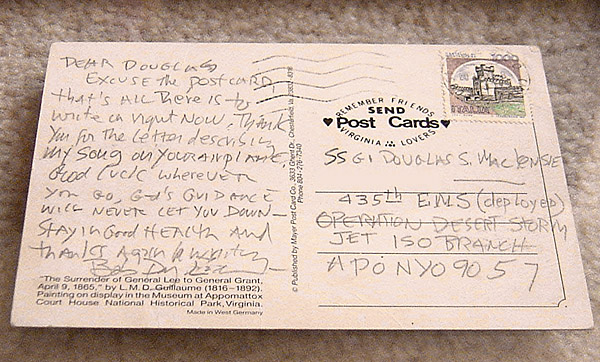 DEAR DOUGLAS
EXCUSE the POSTCARD,
that's ALL There is to
write on right NOW, Thank
You for the Letter describing
my SONG on YOUR AIRPLANE
Good Luck wherever
You Go, God's GUIDANCE
WILL NEVER LET YOU DOWN—
STAY in Good HEALTH AND
thanks Again
Bob Dylan
"The Surrender of General Lee to General Grant,
April 9, 1865," by L. M. D. Guillaume (1816–1892).
Painting on display in the Museum at Appomattox
Court House National Historical Park, Virginia.
Made in West Germany
© Published by Mayer Post Card Co., Chesterfield, Va.
Phone 804-276-7340
REMEMBER FRIENDS
SEND
♥Post Cards♥
VIRGINIA IS LOVERS
ITALIA
SSGT DOUGLAS S. MacKENSIE
435th EMS (deployed)
OPERATION DESERT STORM
JET ISO BRANCH
APO NY 09057